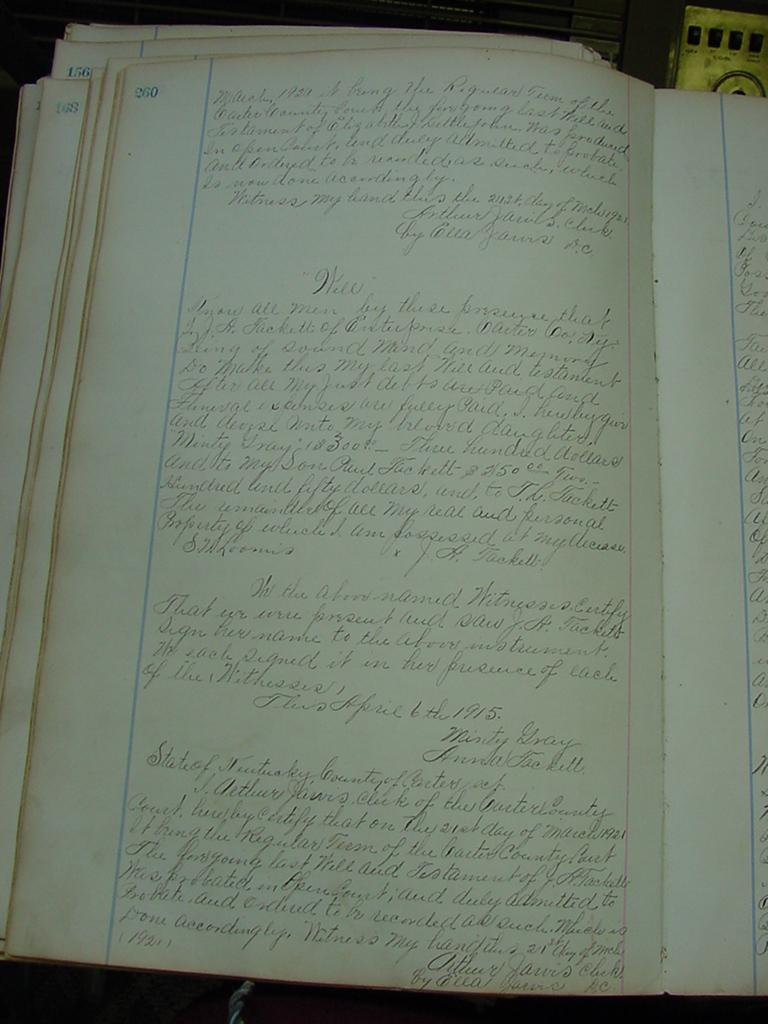 156
168
260
March, 1921 it being the Regular Term of the
Carter County Court the foregoing last Will and
Testament of Elizabeth Littlejohn Was produced
in open Court, and duly admitted to probate.
And Ordered to be recorded as such, which
is now done accordingly.
Witness my hand this the 21st. day of Mch 1921.
Arthur Jarvis. Clerk.
by Ella Jarvis D.C.
"Will"
Know all men by these presence that
I, J. A. Tackett of Enterprise. Carter Co. Ky.
Being of sound Mind and Memory
Do make this My last Will and testament
After all My just debts are Paid and
Funeral expenses are fully Paid. I hereby give
and devise unto My beloved daughter
Minty Gray, $300 00 – Three hundred dollars
and to My Son Paul Tackett $250 00 Two –
Hundred and fifty dollars, and to T. L. Tackett
The remainder of all My real and personal
Property of which I am possessed at my decease.
S. W. Loomis x J. A. Tackett.
We the above named Witnesses, Certify
That we were present and saw J. A. Tackett
Sign her name to the above instrument.
We each signed it in her presence of each
of the Witnesses,
This April 6th 1915.
Minty Gray
Anna Tackett.
State of Kentucky, County of Carter, sct.
I, Arthur Jarvis, Clerk of the Carter County
Court, hereby certify that on the 21st day of March, 1921
It being the Regular Term of the Carter County Court
The foregoing last Will and Testament of J. A. Tackett
Was probated in Open Court, and duly admitted to
Probate. and ordered to be recorded as such. Which is
Done accordingly. Witness My hand this 21st day of Mch
(1921)
Arthur Jarvis Clerk
by Ella Jarvis D.C.